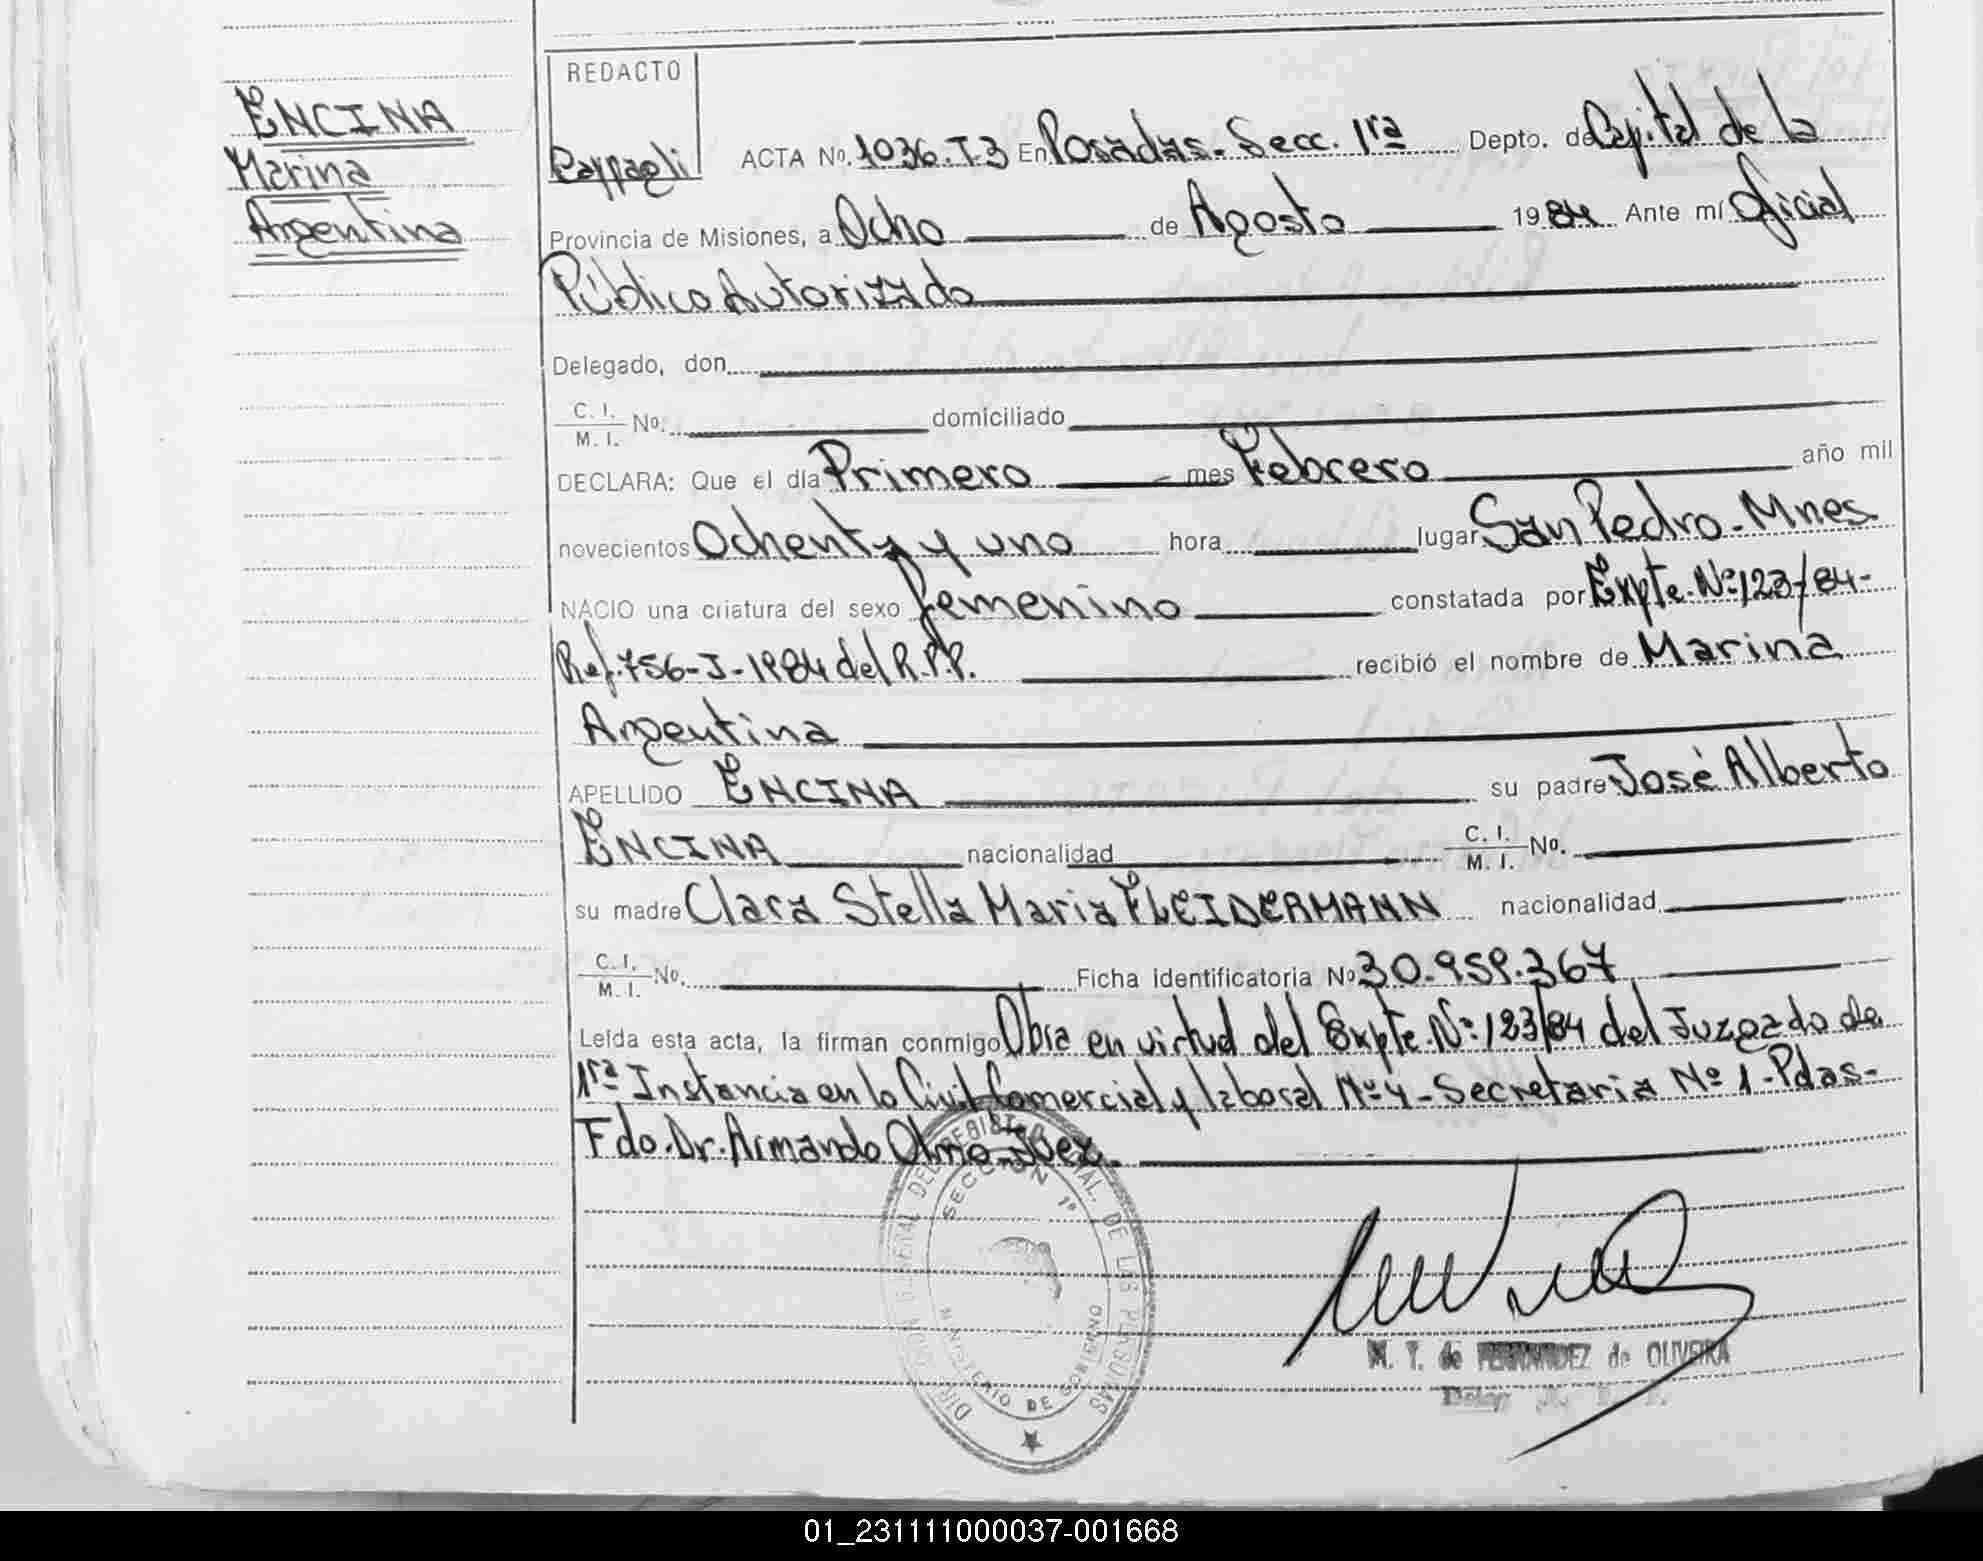 ENCINA
Marina
Argentina
REDACTO
Cappagli
ACTA No. 1036.T3 En Posadas. Secc. 1ra Depto. de Capital de la
Provincia de Misiones, a Ocho de Agosto 1984 Ante mí Oficial
Público Autorizado
Delegado, don
C. I. / M. I. No. domiciliado
DECLARA: Que el día Primero mes Febrero año mil
novecientos Ochenta y uno hora lugar San Pedro - Mnes
NACIO una criatura del sexo femenino constatada por Expte. Nº 123/84-
Ref. 756-J-1984 del R.P.P. recibió el nombre de Marina
Argentina
APELLIDO ENCINA su padre José Alberto
ENCINA nacionalidad C. I. / M. I. No.
su madre Clara Stella Maria FLEIDERMANN nacionalidad
C. I. / M. I. No. Ficha identificatoria No 30.959.367
Leída esta acta, la firman conmigo Obra en virtud del Expte. Nº: 123/84 del Juzgado de
1ra Instancia en lo Civil Comercial y laboral Nº 4 - Secretaria Nº 1 - Pdas-
Fdo. Dr. Armando Olmo Juez.
SECCION 1ª
MINISTERIO DE GOBIERNO
M. T. de FERNANDEZ de OLIVEIRA
01_231111000037-001668